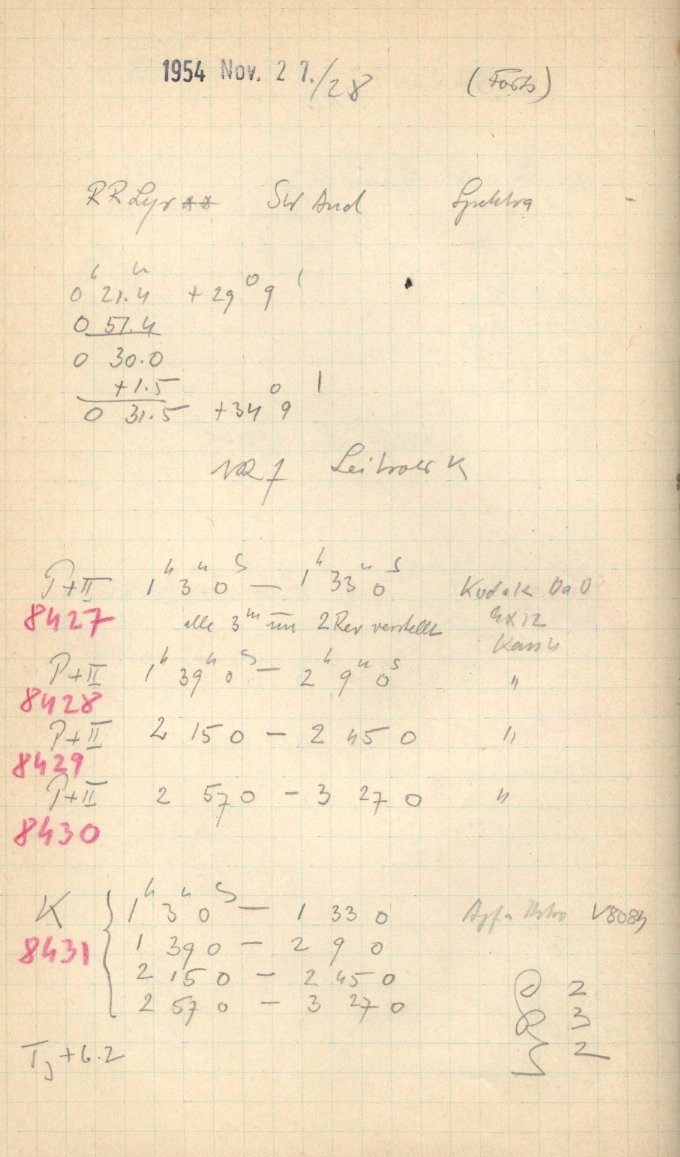 1954 Nov. 27./28 (Forts)
RR Lyr ** SW And Spektra
0ʰ 21.4ᵐ + 29° 9'
0 51.4
0 30.0
+1.5
0 31.5 + 34° 9'
P+II 1ʰ 3ᵐ 0ˢ — 1ʰ 33ᵐ 0ˢ Kodak OaO
8427 alle 3ᵐ um 2 Rev verstellt 9x12
P+II 1ʰ 39ᵐ 0ˢ — 2ʰ 9ᵐ 0ˢ "
8428
P+II 2 15 0 — 2 45 0 "
8429
P+II 2 57 0 — 3 27 0 "
8430
K 1ʰ 3ᵐ 0ˢ — 1 33 0 Agfa Astro V8084
8431 1 39 0 — 2 9 0
2 15 0 — 2 45 0
2 57 0 — 3 27 0
D 2
R 3
S 2
+6.2